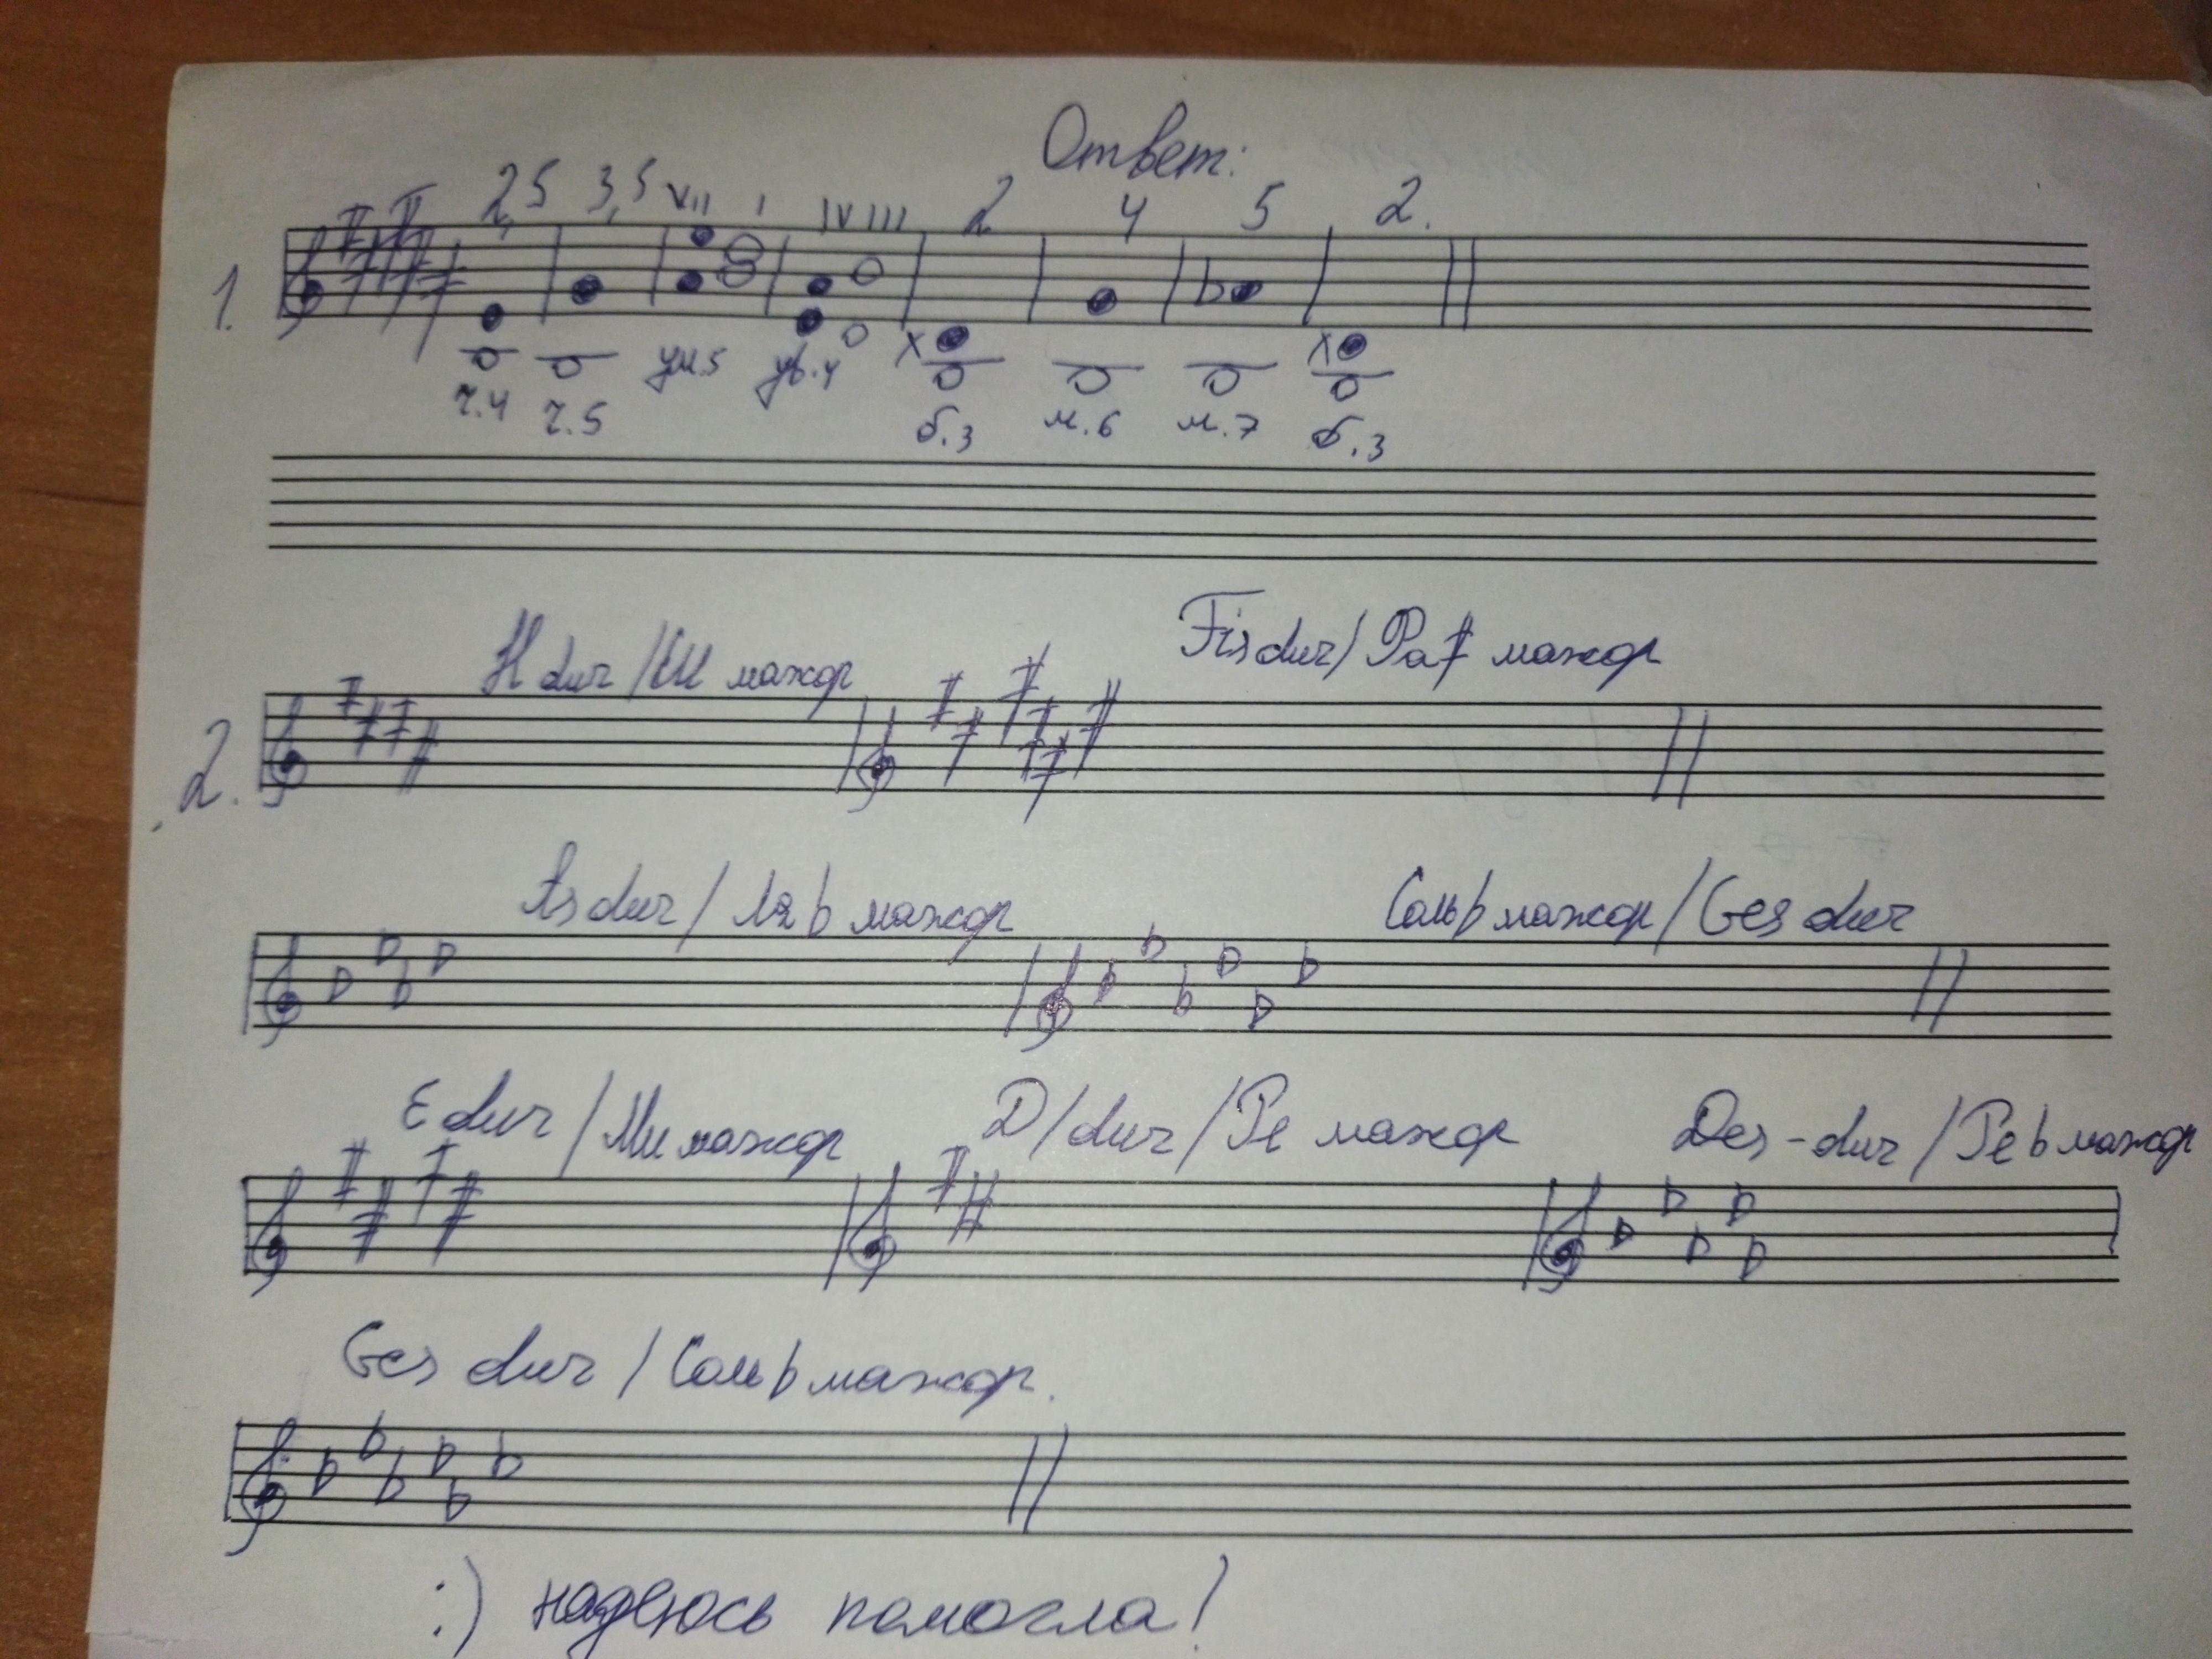 Ответ:
2,5 3,5 VII I IV III 2 4 5 2.
1.
ч.4 ч.5 ум.5 ув.4 б.3 м.6 м.7 б.3
H dur / Си мажор Fis dur / Фа# мажор
2.
As dur / Ля b мажор Соль b мажор / Ges dur
E dur / Ми мажор D / dur / Ре мажор Des-dur / Ре b мажор
Ges dur / Соль b мажор.
:) надеюсь помогла!